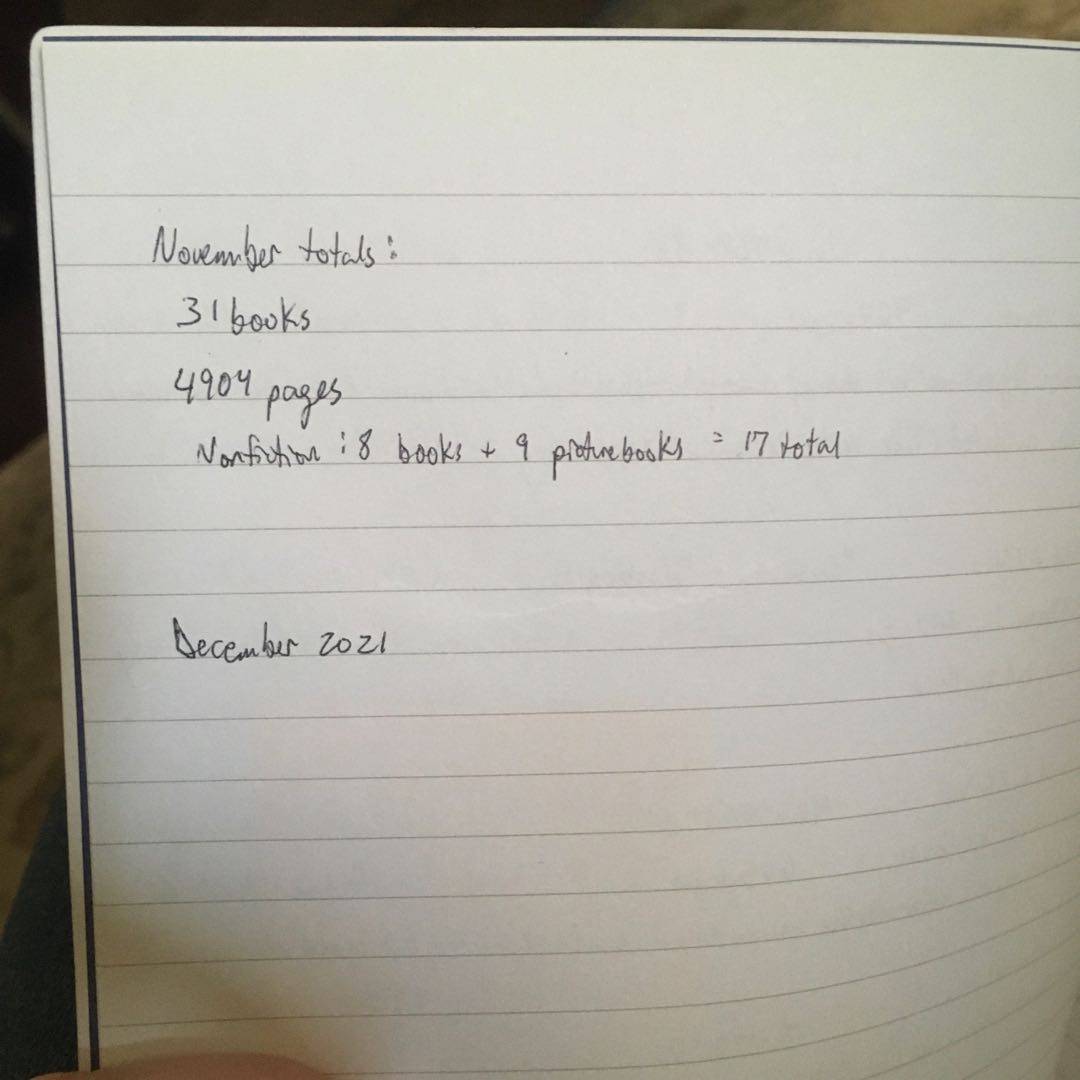 November totals:
31 books
4904 pages
Nonfiction: 8 books + 9 picturebooks = 17 total
December 2021